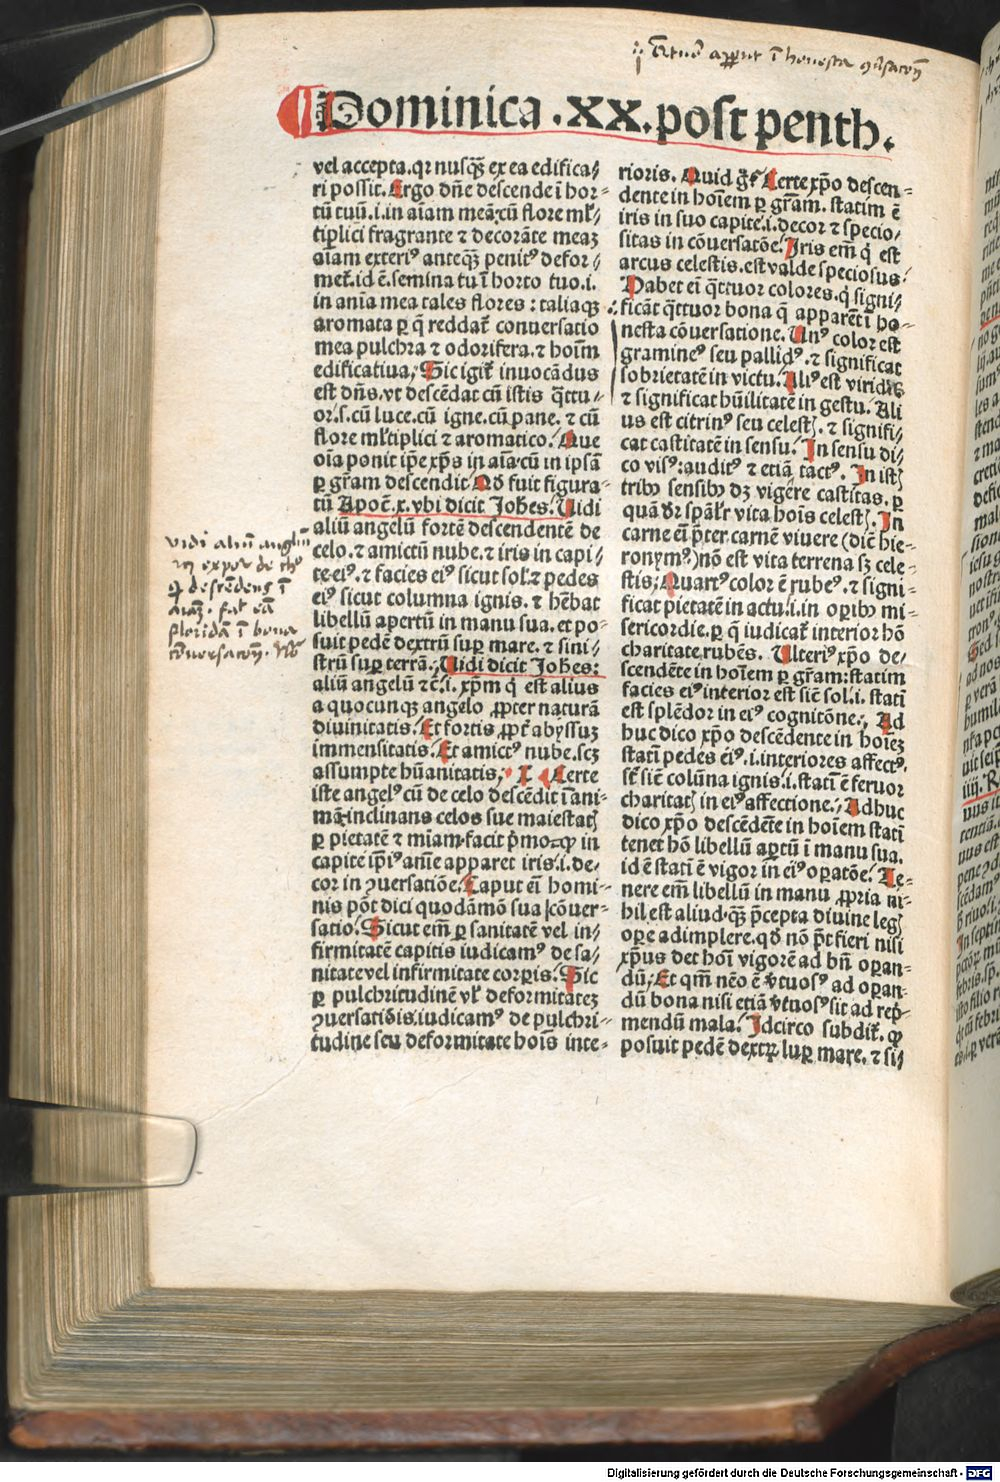 Dominica .XX. post penth.
vel accepta. qr nusq̃ʒ ex ea edifica⸗
ri possit. Ergo dñe descende ĩ hor⸗
tũ tuũ .i. in aĩam meã: cũ flore ml̃⸗
tiplici fragrante ⁊ decorãte meaʒ
aĩam exteriꝰ anteq̃ʒ penitꝰ defor⸗
met̃. id ẽ. semina tu ĩ horto tuo .i.
in anĩa mea tales flores : taliaqʒ
aromata ꝑ q̃ reddat̃ conuersatio
mea pulchra ⁊ odorifera. ⁊ hoĩm
edificatiua. Sic igit̃ inuocãdus
est dñs. vt descẽdat cũ istis q̃ttu⸗
or. s. cũ luce. cũ igne. cũ pane. ⁊ cũ
flore ml̃tiplici ⁊ aromatico. Que
oĩa ponit ip̃e xp̃s in aĩa: cũ in ipsã
ꝑ gr̃am descendit. Qd̃ fuit figura⸗
tũ Apoc̃. x. vbi dicit Johẽs. Uidi
aliũ angelũ fortẽ descendentẽ de
celo. ⁊ amictũ nube. ⁊ iris in capi⸗
te eiꝰ. ⁊ facies eiꝰ sicut sol. ⁊ pedes
eiꝰ sicut columna ignis. ⁊ hẽbat
libellũ apertũ in manu sua. et po⸗
suit pedẽ dextrũ suꝑ mare. ⁊ sini⸗
strũ suꝑ terrã. Uidi dicit Johẽs:
aliũ angelũ ⁊c̃. i. xp̃m q̇ est alius
a quocunqʒ angelo ꝓpter naturã
diuinitatis. Et fortis ꝓpt̃ abyssuʒ
immensitatis. Et amictꝰ nube. scʒ
assumpte hũanitatis. Certe
iste angelꝰ cũ de celo descẽdit ĩ ani⸗
mã: inclinans celos sue maiestatꝭ
ꝑ pietatẽ ⁊ miam. facit p̃mo ꝙ in
capite ip̃iꝰ anĩe apparet iris. i. de⸗
cor in ꝯuersatiõe. Caput eĩ homi⸗
nis põt dici quodãmõ sua cõuer⸗
satio. Sicut em̃ ꝑ sanitatẽ vel in⸗
firmitatẽ capitis iudicamꝰ de sa⸗
nitate vel infirmitate corꝑis. Sic
ꝑ pulchritudinẽ vl̃ deformitateʒ
ꝯuersatiõis. iudicamꝰ de pulchri⸗
tudine seu deformitate hoĩs inte⸗
rioris. Quid g̊ Certe xp̃o descen⸗
dente in hoĩem ꝑ gr̃am. statim ẽ
iris in suo capite. i. decor ⁊ specio⸗
sitas in cõuersatõe. Iris em̃ q̇ est
arcus celestis. est valde speciosus.
Habet eĩ q̃ttuor colores. q̇ signi⸗
ficãt q̃ttuor bona q̃ apparẽt ĩ ho⸗
nesta cõuersatione. Unꝰ color est
gramineꝰ seu pallidꝰ. ⁊ significat
sobrietatẽ in victu. Aliꝰ est viridis
⁊ significat hũilitatẽ in gestu. Ali
us est citrinꝰ seu celestꝭ. ⁊ signifi⸗
cat castitatẽ in sensu. In sensu di⸗
co visꝰ: auditꝰ ⁊ etiã tactꝰ. In istꝭ
tribꝰ sensibꝰ dʒ vigere castitas. ꝑ
quã dr̃ spãlr̃ vita hoĩs celestꝭ. In
carne eĩ p̃ter carnẽ viuere (dic̃ hie⸗
ronymꝰ) nõ est vita terrena sʒ cele⸗
stis. Quartꝰ color ẽ rubeꝰ. ⁊ signi⸗
ficat pietatẽ in actu .i. in oꝑibꝰ mi⸗
sericordie. ꝑ q̃ iudicat̃ interior hõ
charitate rubẽs. Ulteriꝰ xp̃o de⸗
scendẽte in hoĩem ꝑ gr̃am: statim
facies eiꝰ interior est sic̃ sol .i. stati
est splẽdor in eiꝰ cognitõne. Ad
huc dico xp̃o descẽdente in hoĩeʒ
stati pedes eiꝰ. i. interiores affectꝰ.
st̃ sic̃ colũna ignis. i. stati ẽ feruor
charitatꝭ in eiꝰ affectione. Adhuc
dico xp̃o descẽdẽte in hoĩem stati
tenet hõ libellũ aꝑtũ ĩ manu sua.
id ẽ stati ẽ vigor in eiꝰ oꝑatõe. Te⸗
nere em̃ libellũ in manu ꝓpria ni⸗
hil est aliud. q̃ʒ p̃cepta diuine legꝭ
oꝑe adimplere. qd̃ nõ põt fieri nisi
xp̃us det hoĩ vigorẽ ad bñ oꝑan⸗
dũ. Et qm̃ nẽo ẽ v̾tuosꝰ ad oꝑan⸗
dũ bona nisi etiã v̾tuosꝰ sit ad rep̃⸗
mendũ mala. Idcirco subdit̃. ꝙ
posuit pedẽ dextꝝ suꝑ mare. ⁊ si⸗
vidi aliũ anglũ
Digitalisierung gefördert durch die Deutsche Forschungsgemeinschaft - DFG